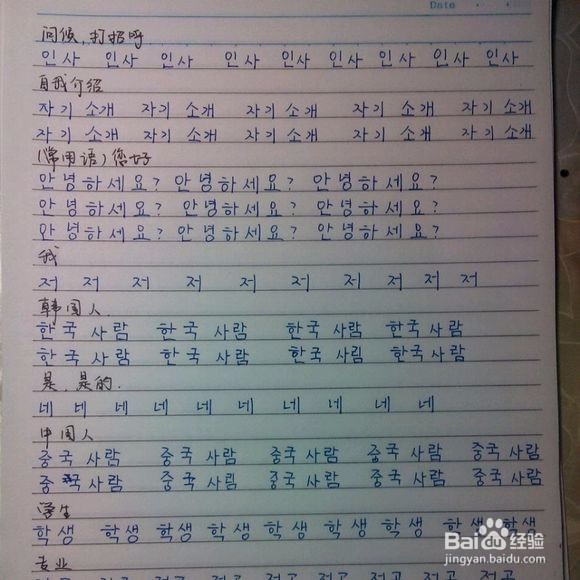 Date
问候,打招呼
인사 인사 인사 인사 인사 인사 인사 인사 인사 인사
自我介绍
자기 소개 자기 소개 자기 소개 자기 소개 자기 소개
자기 소개 자기 소개 자기 소개 자기 소개 자기 소개
(常用语)您好
안녕하세요? 안녕하세요? 안녕하세요?
안녕하세요? 안녕하세요? 안녕하세요?
안녕하세요? 안녕하세요? 안녕하세요?
我
저 저 저 저 저 저 저 저 저 저
韩国人
한국 사람 한국 사람 한국 사람 한국 사람
한국 사람 한국 사람 한국 사림 한국 사람
是,是的.
네 네 네 네 네 네 네 네 네 네
中国人
중국 사람 중국 사람 중국 사람 중국 사람 중국 사람
중국 사람 중국 사림 중국 사람 중국 사람 중국 사람
学生
학생 학생 학생 학생 학생 학생 학생 학생 학생 학생
专业
Baidu 经验
jingyan.baidu.com